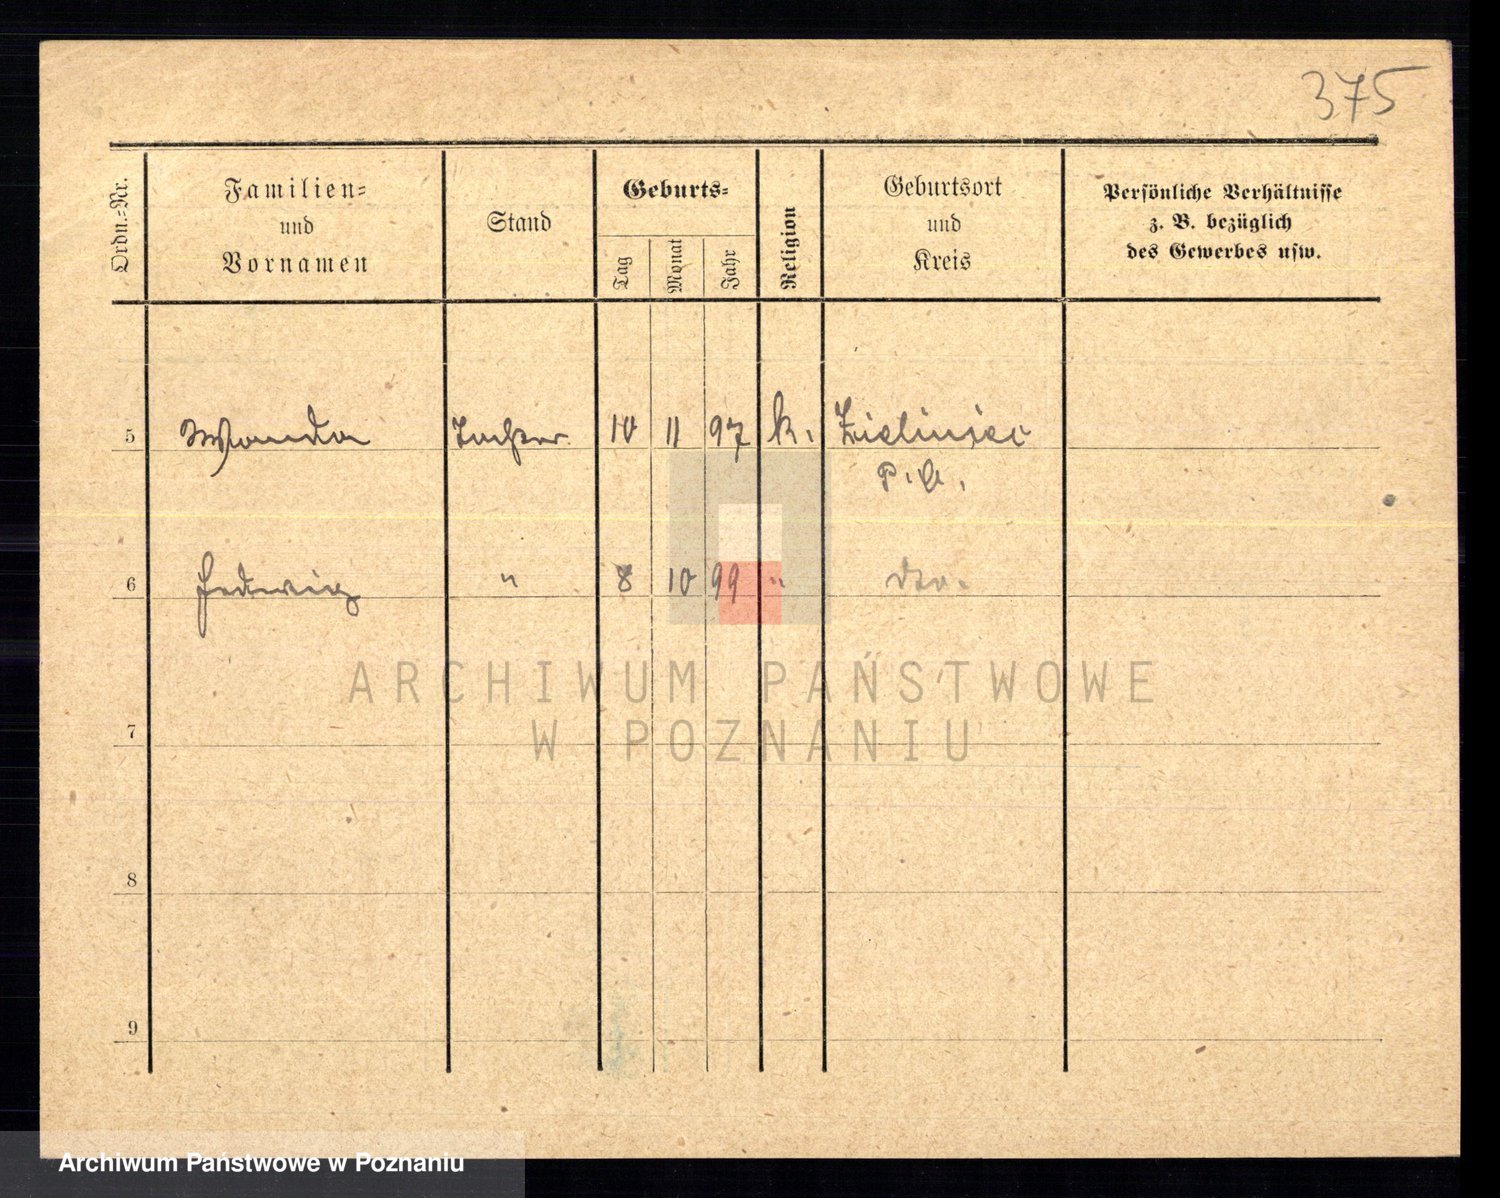 375
Ordn.-Nr.
Familien-
und
Vornamen
Stand
Geburts-
Tag
Monat
Jahr
Religion
Geburtsort
und
Kreis
Persönliche Verhältnisse
z. B. bezüglich
des Gewerbes usw.
5 Wanda Tochter 10 11 97 k. Zieliniec
P. O.
6 Hedwig " 8 10 99 " dto.
7
8
9
ARCHIWUM PAŃSTWOWE
W POZNANIU
Archiwum Państwowe w Poznaniu